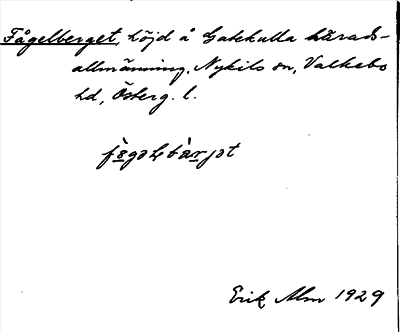 Fågelberget, höjd å Gatkulla härads-
allmänning, Nykils sn, Valkebo
hd, Österg. l.
Erik Alm 1929